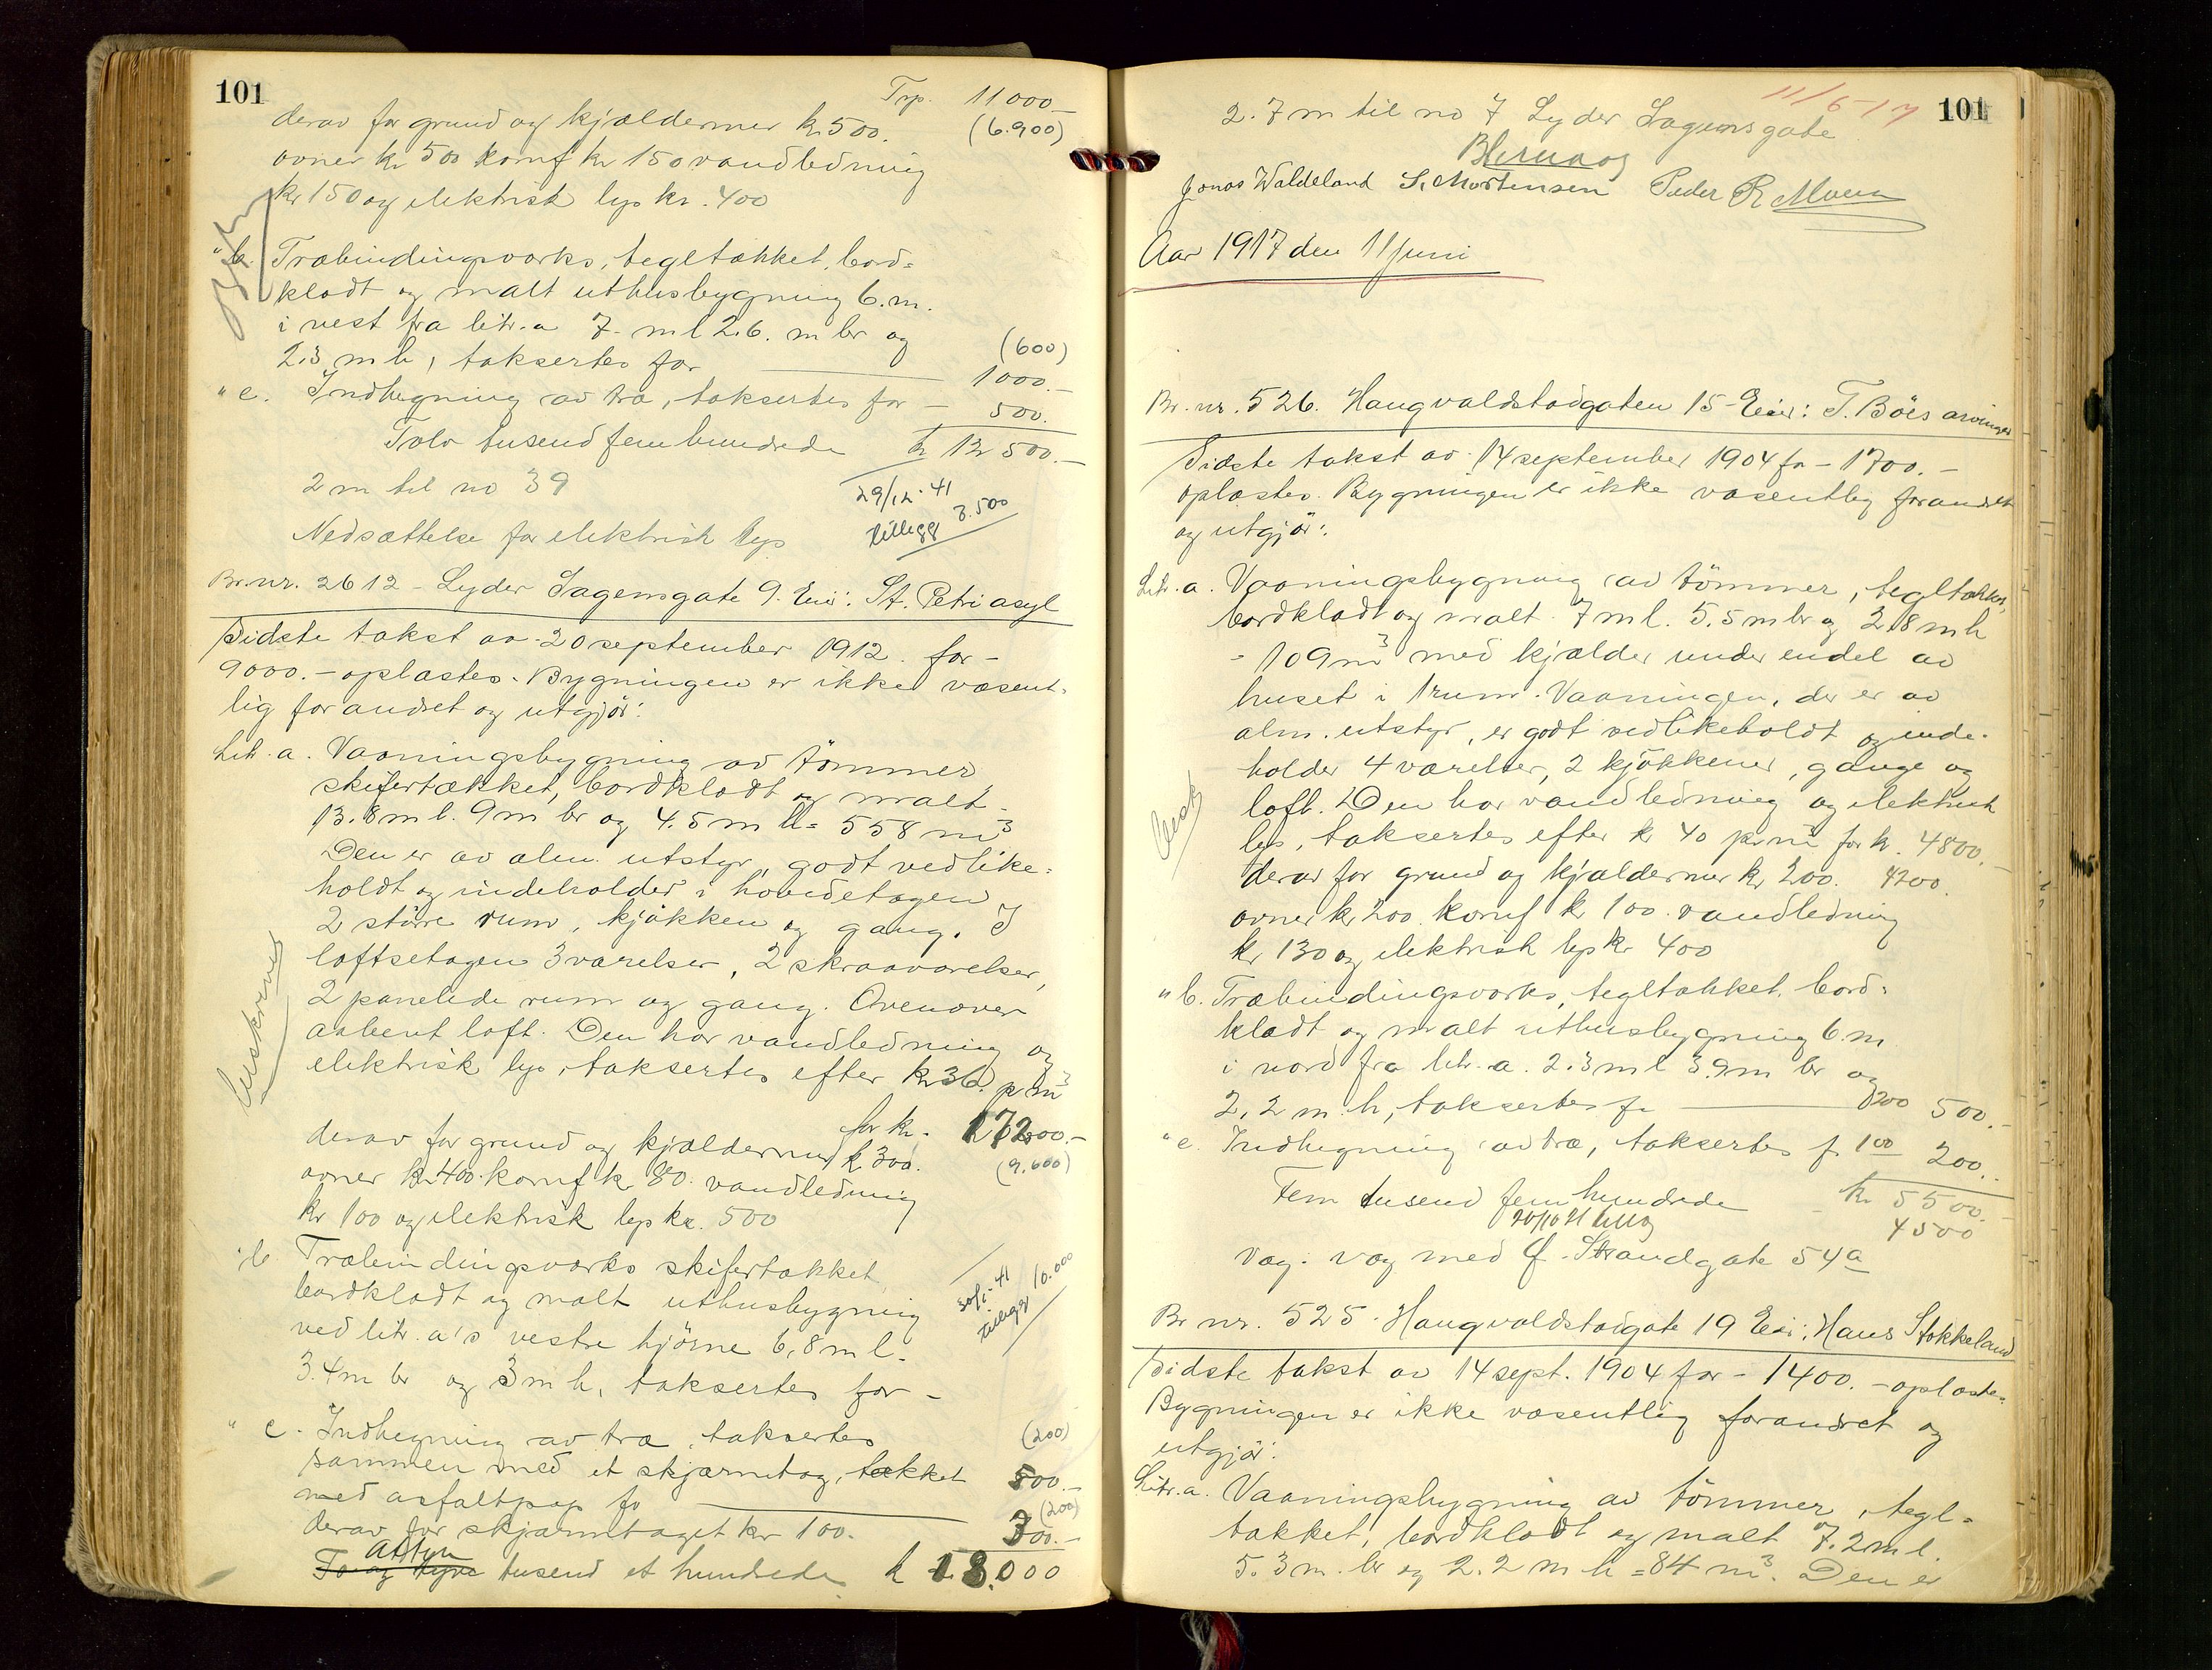 101
Trp. 11000.-
derav for grund og kjældermur kr. 500.
(6.900)
ovner kr 500 komf kr 150 vandledning
kr 150 og elektrisk lys kr. 400
" b. Træbindingsverks, tegltækket, bord-
klædt og malt uthusbygning 6.m.
i vest fra litr. a 7. m l 2.6. m br og
(600)
2.3 m h, taksertes for 1000.-
" c. Indhegning av træ, taksertes for - 500.
Tolv tusend fem hundrede kr 12500.-
2 m til no 39
29/12-41
tillegg 3.500
Nedsættelse for elektrisk lys
Br. nr. 2612 - Lyder Sagensgate 9. Eier: St. Petri asyl
Sidste takst av 20 september 1912 for -
9000.- oplæstes. Bygningen er ikke væsent-
lig forandret og utgjör:
Litr. a. Vaaningsbygning av tömmer
skifertækket, bordklædt og malt.
13.8 m l. 9 m br og 4.5 m h = 558 m³
Den er av alm. utstyr, godt vedlike-
holdt og indeholder i hovedetagen
2 större rum, kjökken og gang. I
loftsetagen 3 værelser, 2 skraaværelser,
2 panelede rum og gang. Ovenover
aabent loft. Den har vandledning og
elektrisk lys, taksertes efter kr 36 p m³
for kr. 17200.-
derav for grund og kjældermur kr 300.
(9.600)
ovner kr 400. komf kr 80. vandledning
kr 100 og elektrisk lys kr. 500
" b Træbindingsverks skifertækket
bordklædt og malt uthusbygning
-41
tillegg 10.000
ved litr. a's vestre hjörne 6,8 m l.
3.4 m br og 3 m h, taksertes for -
(200)
" c. Indhegning av træ, taksertes
sammen med et skjærmtag, tækket 500.-
med asfaltpap for
(200)
300.-
derav for skjærmtaget kr 100.
Atten
To og tyve tusend et hundrede kr 18.000
101
11/6-17
2.7 m til no 7 Lyder Sagensgate
Jonas Waldeland S. Mortensen Peder R Moen
Aar 1917 den 11 Juni
Br. nr. 526. Haugvaldstadgaten 15 Eier: T. Böes arvinger
Sidste takst av 14 september 1904 for - 1700.-
oplæstes. Bygningen er ikke væsentlig forandret
og utgjör:
Litr. a. Vaaningsbygning av tömmer, tegltækket,
bordklædt og malt 7 m l. 5.5 m br og 2.8 m h
= 109 m³ med kjælder under endel av
huset i 1 rum. Vaaningen, der er av
alm. utstyr, er godt vedlikeholdt og inde-
holder 4 værelser, 2 kjökkener, gange og
loft. Den har vandledning og elektrisk
lys, taksertes efter kr 40 pr m³ for kr. 4800.-
derav for grund og kjældermur kr 200. 4200.
ovner kr 200 komf kr 100. vandledning
kr 130 og elektrisk lys kr 400
" b. Træbindingsverks, tegltækket, bord-
klædt og malt uthusbygning 6 m
i nord fra litr. a. 2.3 m l 3.9 m br og
2,2 m h, taksertes f. 200 500.-
" c. Indhegning av træ, taksertes f. 100 200.-
Fem tusend fem hundrede kr 5500.-
4500
Væg i væg med Ö. Strandgate 54a
Br nr. 525. Haugvaldstadgate 19 Eier: Hans Stokkeland
Sidste takst av 14 sept. 1904 for - 1400.- oplæstes.
Bygningen er ikke væsentlig forandret og
utgjör:
Litr. a. Vaaningsbygning av tömmer, tegl-
tækket, bordklædt og malt 7.2 m l.
5.3 m. br og 2.2 m h = 84 m³. Den er